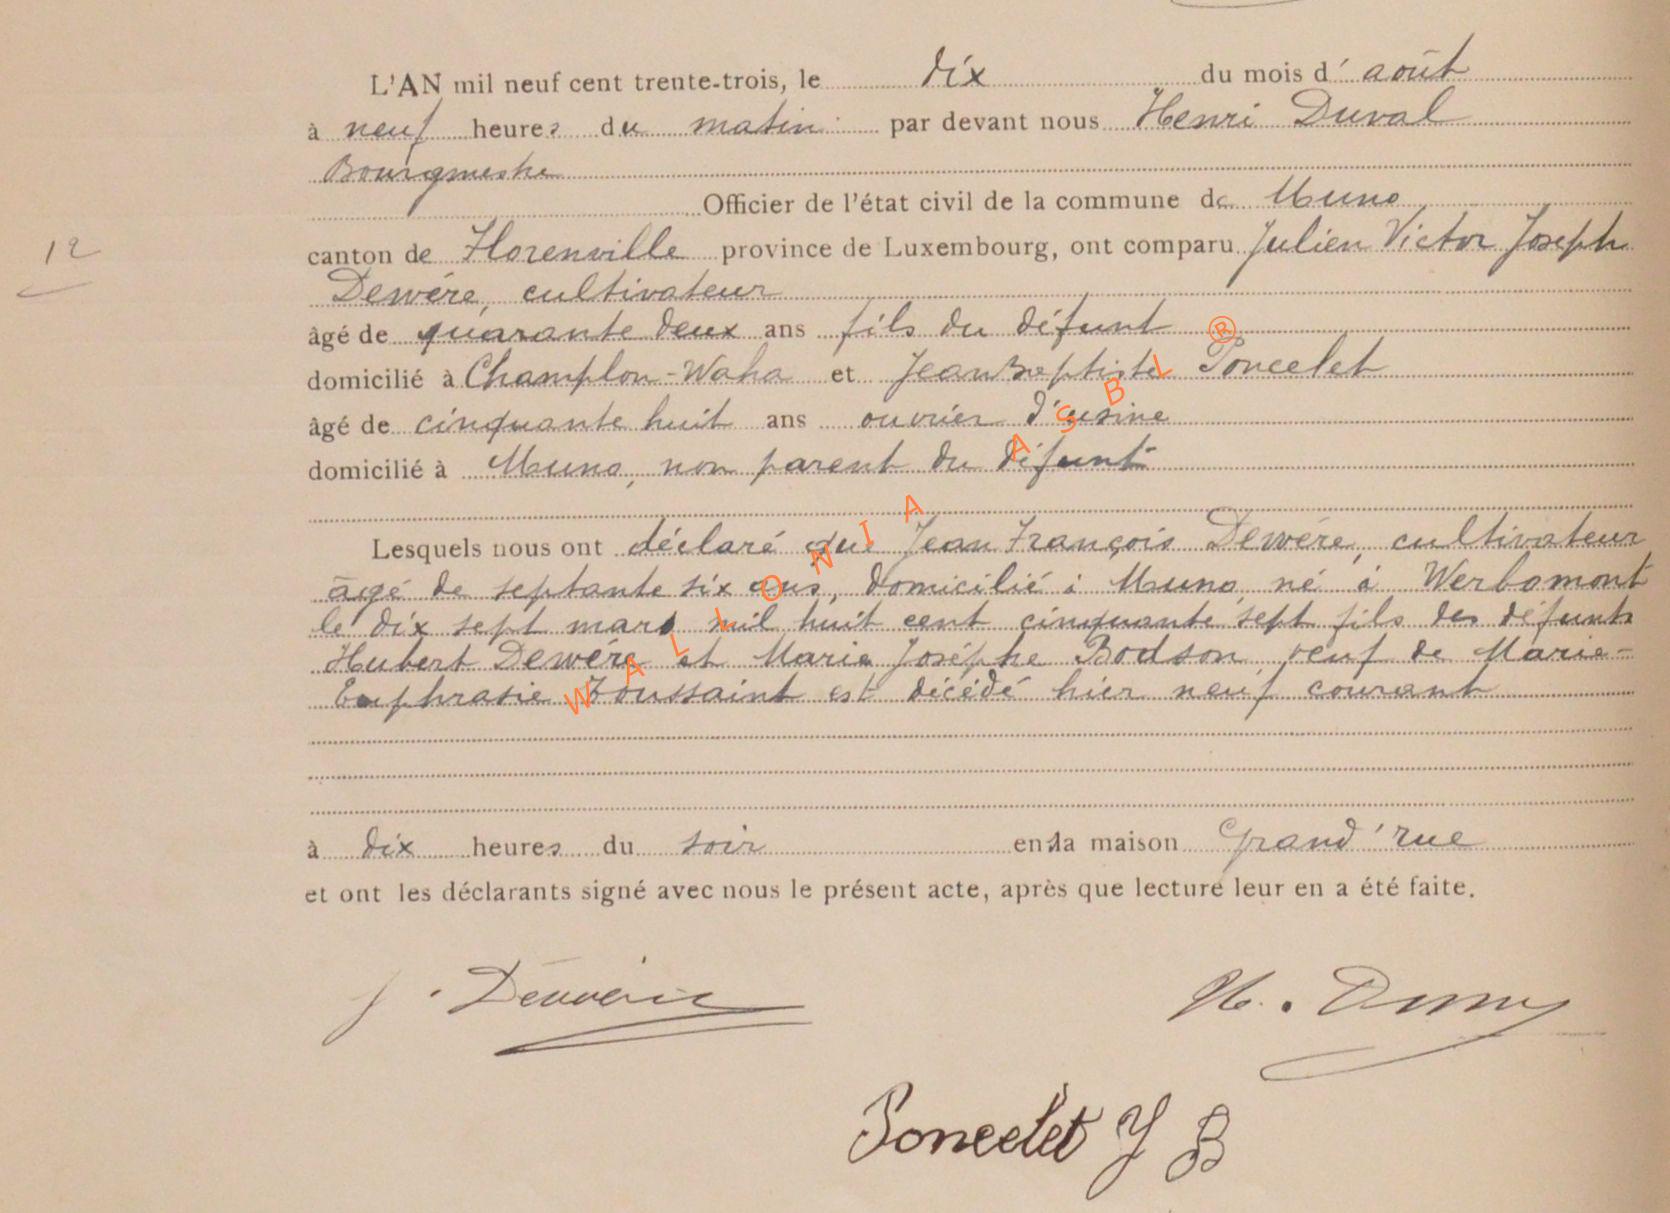 L'AN mil neuf cent trente-trois, le dix du mois d' août
à neuf heures du matin par devant nous Henri Duval
Bourgmestre
Officier de l'état civil de la commune de Muno
12
canton de Florenville province de Luxembourg, ont comparu Julien Victor Joseph
Dewère, cultivateur
âgé de quarante deux ans fils du défunt
domicilié à Champlon-Waha et Jean Baptiste Poncelet
âgé de cinquante huit ans ouvrier d'usine
domicilié à Muno, non parent du défunt
Lesquels nous ont déclaré que Jean François Dewère, cultivateur
âgé de septante six ans, domicilié à Muno, né à Werbomont
le dix sept mars mil huit cent cinquante sept fils des défunts
Hubert Dewère et Marie Josèphe Bodson veuf de Marie-
Euphrasie Toussaint est décédé hier neuf courant
à dix heures du soir en sa maison Grand'rue
et ont les déclarants signé avec nous le présent acte, après que lecture leur en a été faite.
J. Dewère
H. Duval
Poncelet J B
WALLONIA ASBL ®